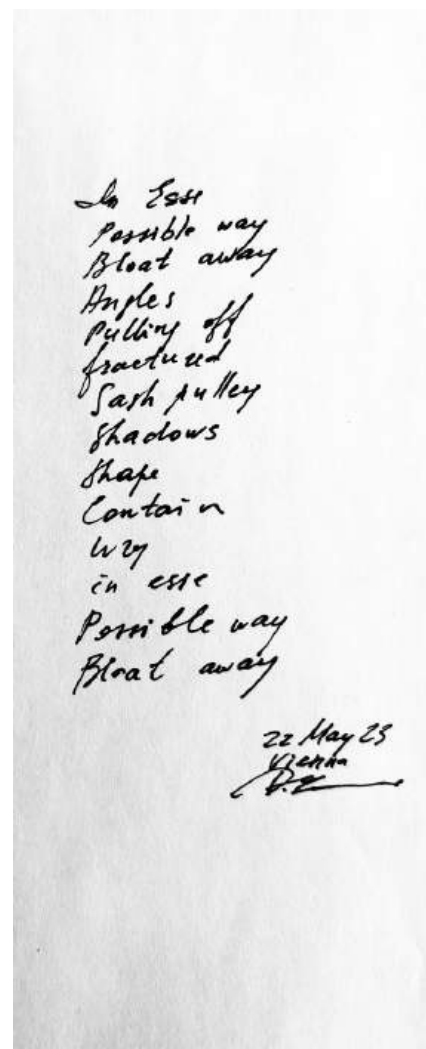 In Esse
Possible way
Bloat away
Angles
Pulling off
fractured
Sash pulley
Shadows
Shape
Contain
Wry
in esse
Possible way
Bloat away
22 May 23
Vienna